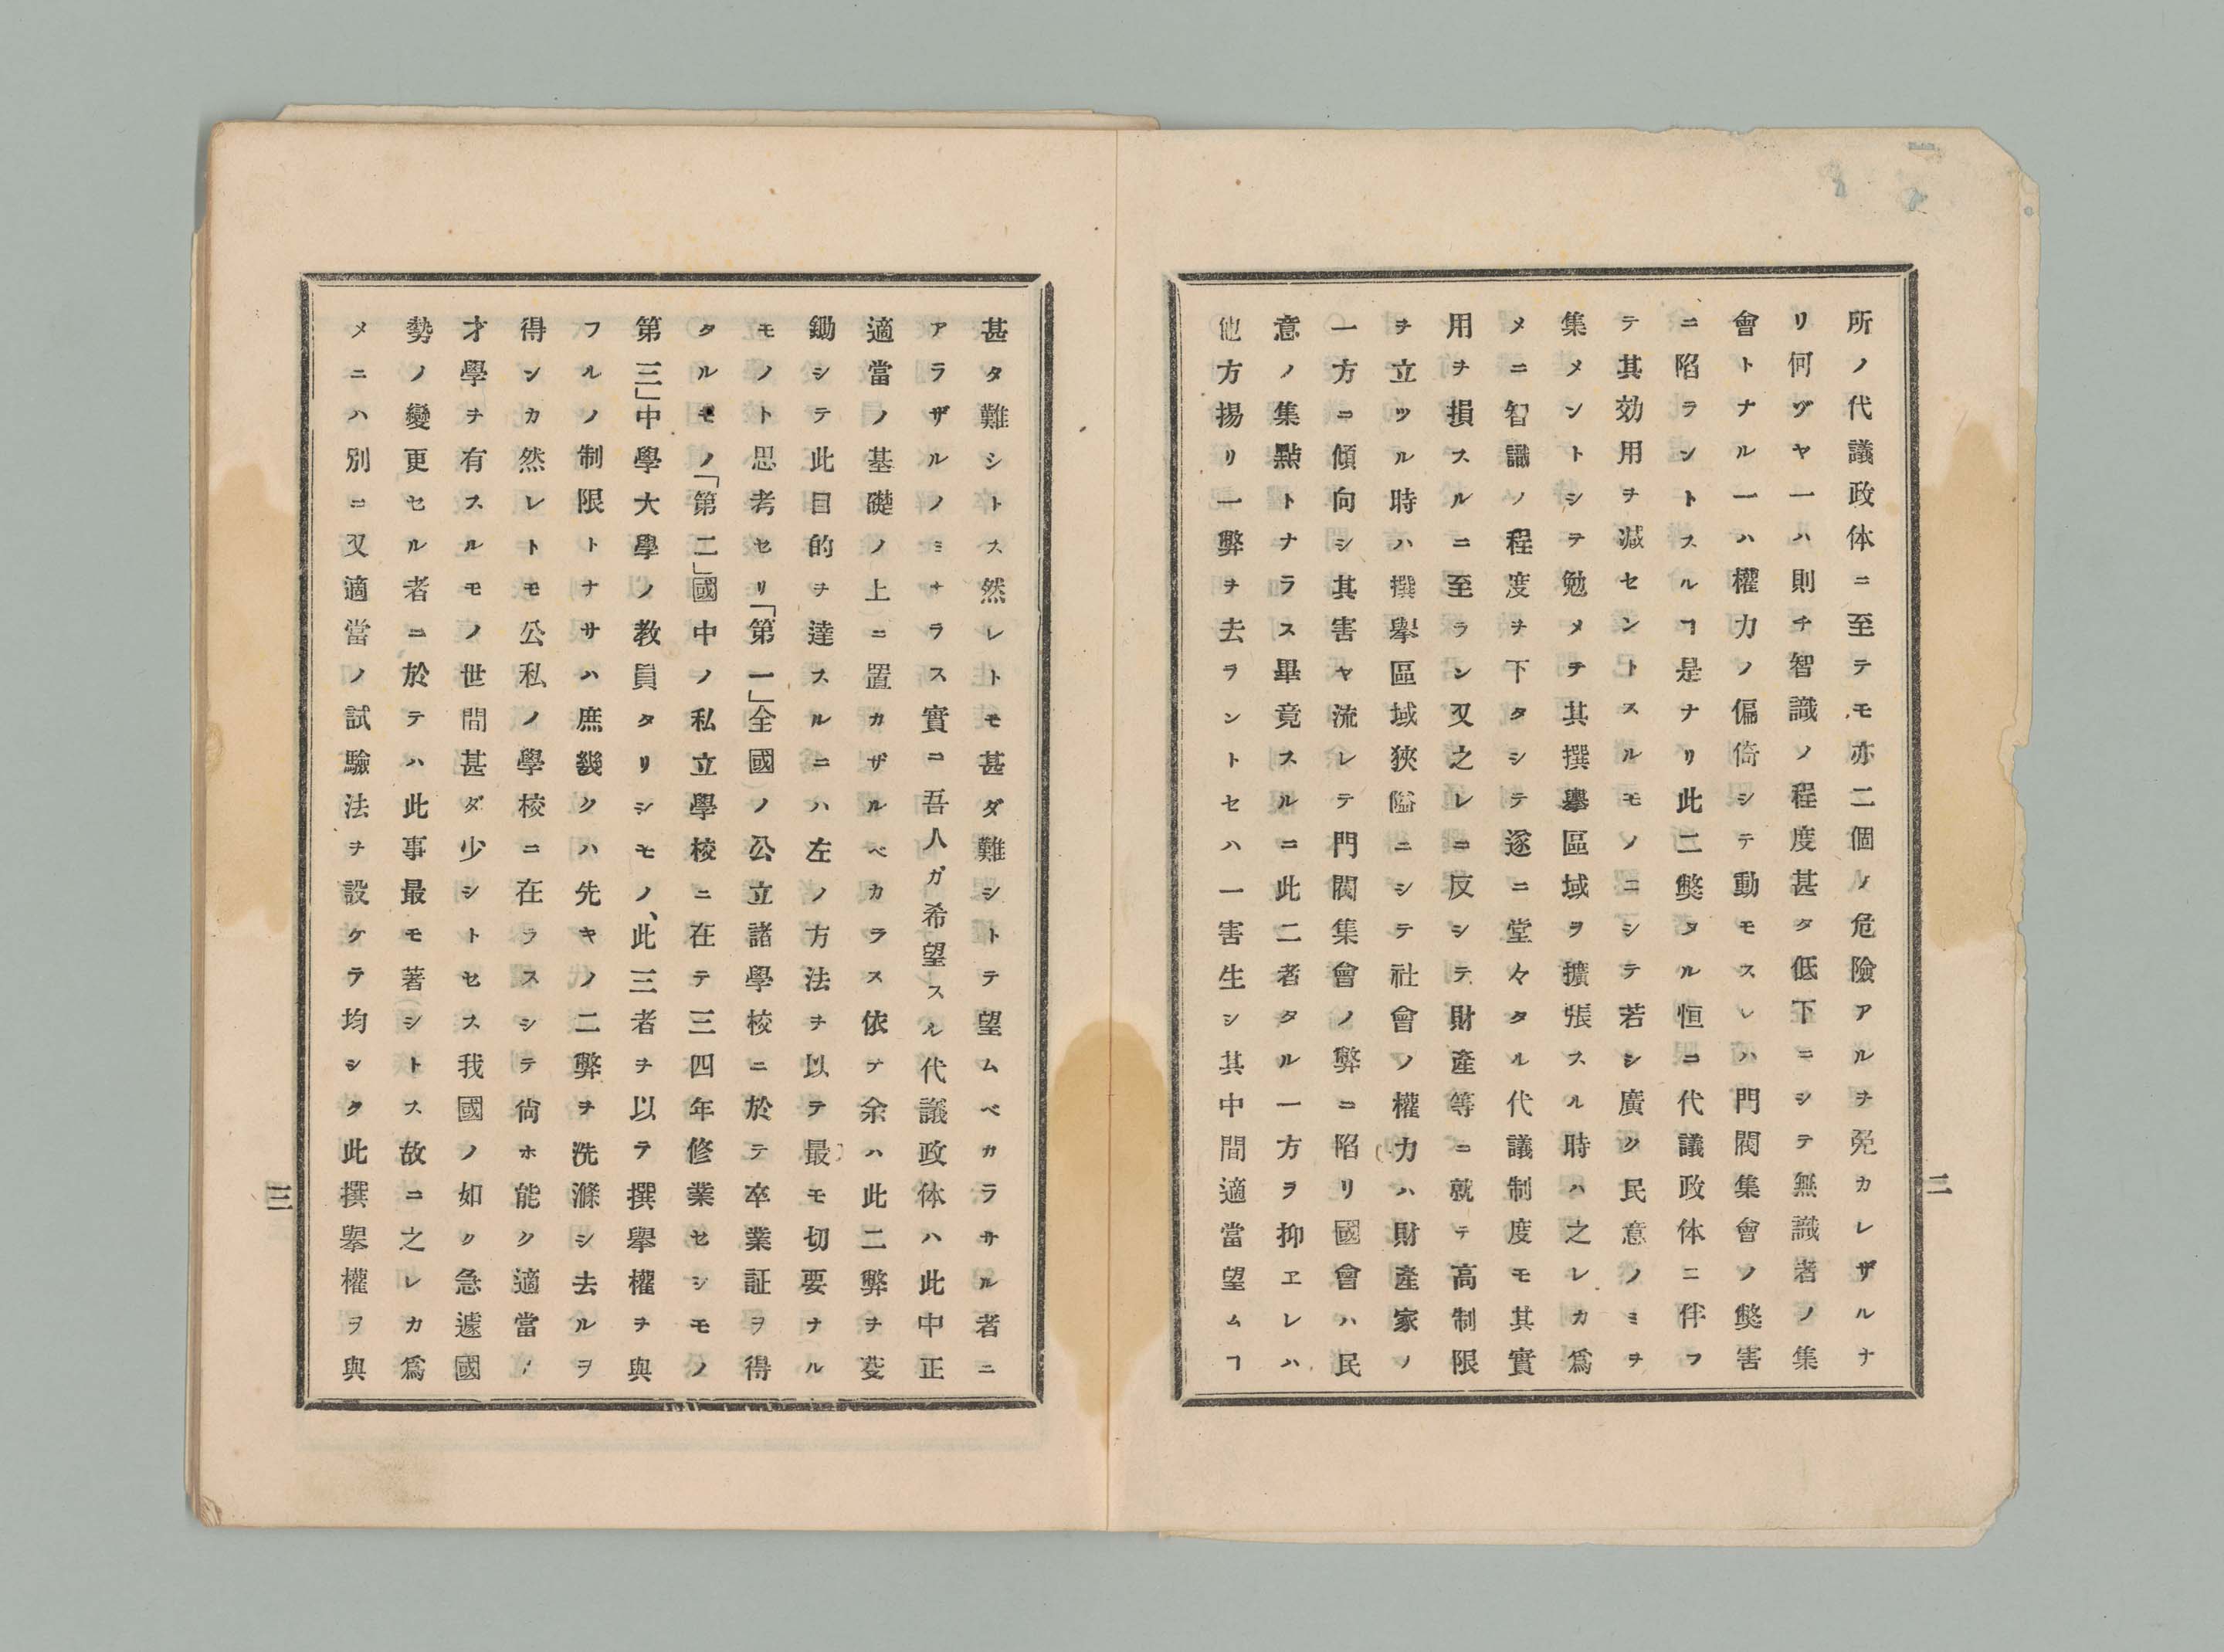 所ノ代議政体ニ至テモ亦二個ノ危險アルヲ免カレザルナ
リ何ゾヤ一ハ則チ智識ノ程度甚タ低下ニシテ無識者ノ集
會トナル一ハ權力ノ偏倚シテ動モスレハ門閥集會ノ獘害
ニ陷ラントスルヿ是ナリ此二獘タル恒ニ代議政体ニ伴フ
テ其効用ヲ减セントスルモノニシテ若シ廣ク民意ノミヲ
集メントシテ勉メテ其撰擧區域ヲ擴張スル時ハ之レカ爲
メニ智識ノ程度ヲ下タシテ遂ニ堂々タル代議制度モ其實
用ヲ損スルニ至ラン又之レニ反シテ財產等ニ就テ高制限
ヲ立ツル時ハ撰擧區域狹隘ニシテ社會ノ權力ハ財產家ノ
一方ニ傾向シ其害ヤ流レテ門閥集會ノ弊ニ陷リ國會ハ民
意ノ集點トナラス畢竟スルニ此二者タル一方ヲ抑ヱレハ
他方揚リ一弊ヲ去ラントセハ一害生シ其中間適當望ムヿ
二
甚タ難シトス然レトモ甚ダ難シトテ望ムベカラサル者ニ
アラザルノミナラス實ニ吾人ガ希望スル代議政体ハ此中正
適當ノ基礎ノ上ニ置カザルベカラス依テ余ハ此二弊ヲ芟
鋤シテ此目的ヲ達スルニハ左ノ方法ヲ以テ最モ切要ナル
モノト思考セリ「第一」全國ノ公立諸學校ニ於テ卒業証ヲ得
タルモノ「第二」國中ノ私立學校ニ在テ三四年修業セシモノ
第三」中學大學ノ教員タリシモノ、此三者ヲ以テ撰擧權ヲ與
フルノ制限トナサハ庶幾クハ先キノ二弊ヲ洗滌シ去ルヲ
得ンカ然レトモ公私ノ學校ニ在ラスシテ尙ホ能ク適當ノ
才學ヲ有スルモノ世間甚ダ少シトセス我國ノ如ク急遽國
勢ノ變更セル者ニ於テハ此事最モ著シトス故ニ之レカ爲
メニハ別ニ又適當ノ試驗法ヲ設ケテ均シク此撰擧權ヲ與
三